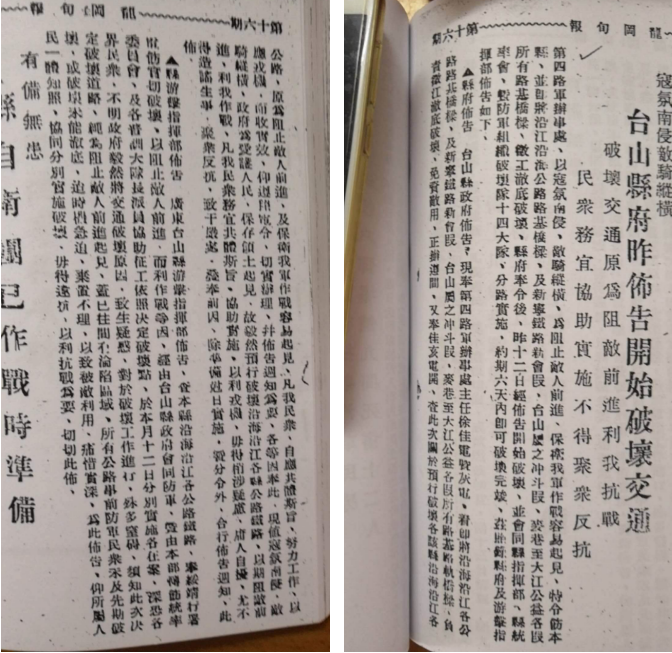 龍岡旬報 第十六期
寇氛南侵敵騎縱橫
台山縣府昨佈告開始破壞交通
破壞交通原爲阻敵前進利我抗戰
民衆務宜協助實施不得聚衆反抗
第四路軍辦事處、以寇氛南侵、敵騎縱橫、爲阻止敵人前進、保衛我軍作戰容易起見、特令飭本
縣、並自縣沿江沿海公路路基橋樑、及新寧鐵路新會段、台山屬之冲斗段、麥巷至大江公益各段
所有路基橋樑、徵工澈底破壞、縣府奉令後、昨十二日經佈告開始破壞、並會同縣指揮部、縣統
率會、暨防軍組織破壞隊十四大隊、分路實施、約期六天內卽可破壞完竣、茲將縣府及游擊指
揮部佈告如下、
▲縣府佈告 台山縣政府佈告、現奉第四路軍辦事處主任徐佳電賀灰電、着卽將沿海沿江各公
路路基橋樑、及新寧鐵路新會段、台山屬之冲斗段、麥巷至大江公益各段所有路基路軌橋樑、負
責徵工澈底破壞、免資敵用、正辦理間、又奉佳亥電開、查此次關於預行破壞各該縣沿海沿江各
龍岡旬報 第十六期
公路、原爲阻止敵人前進、及保衛我軍作戰容易起見、凡我民衆、自應共體斯旨、努力工作、以
應戎機、而收實效、仰遵迭電令、切實辦理、幷佈告週知爲要、各等因奉此、現值寇氛南侵、敵
騎縱橫、政府爲愛護人民、保存領土起見、故毅然預行破壞沿海沿江各縣公路鐵路、以期阻敵前
進、利我作戰、凡我民衆務宜共體斯旨、協助實施、以利戎機、毋得稍涉疑慮、庸人自擾、尤不
得造謠生事、聚衆反抗、致干嚴究、茲奉前因、除準備尅日實施、暨分令外、合行佈告週知、此
佈、
▲縣游擊指揮部佈告 廣東台山縣游擊指揮部佈告、查本縣沿海沿江各公路鐵路、奉綏靖行署
電飭實切破壞、以阻止敵人前進、而利作戰等因、經由台山縣政府會同防軍、暨由本部轉飭統率
委員會、及各普訓大隊長派員協助征工依照決定破壞點、於本月十二日分別實施各在案、深恐各
界民衆、不明政府毅然將交通破壞原因、致生疑惑、對於破壞工作進行、殊多窒碍、須知此次決
定破壞道路、純爲阻止敵人前進起見、蓋已往關不淪陷區域、所有公路事前防軍民衆未及先期破
壞、或破壞未能澈底、迨時機急迫、棄置不理、以致被敵利用、痛惜實深、爲此佈告、仰所屬人
民一體知照、協同分別實施破壞、毋得違抗、以利抗戰爲要、切切此佈、
有備無患
縣自衛團已作戰時準備